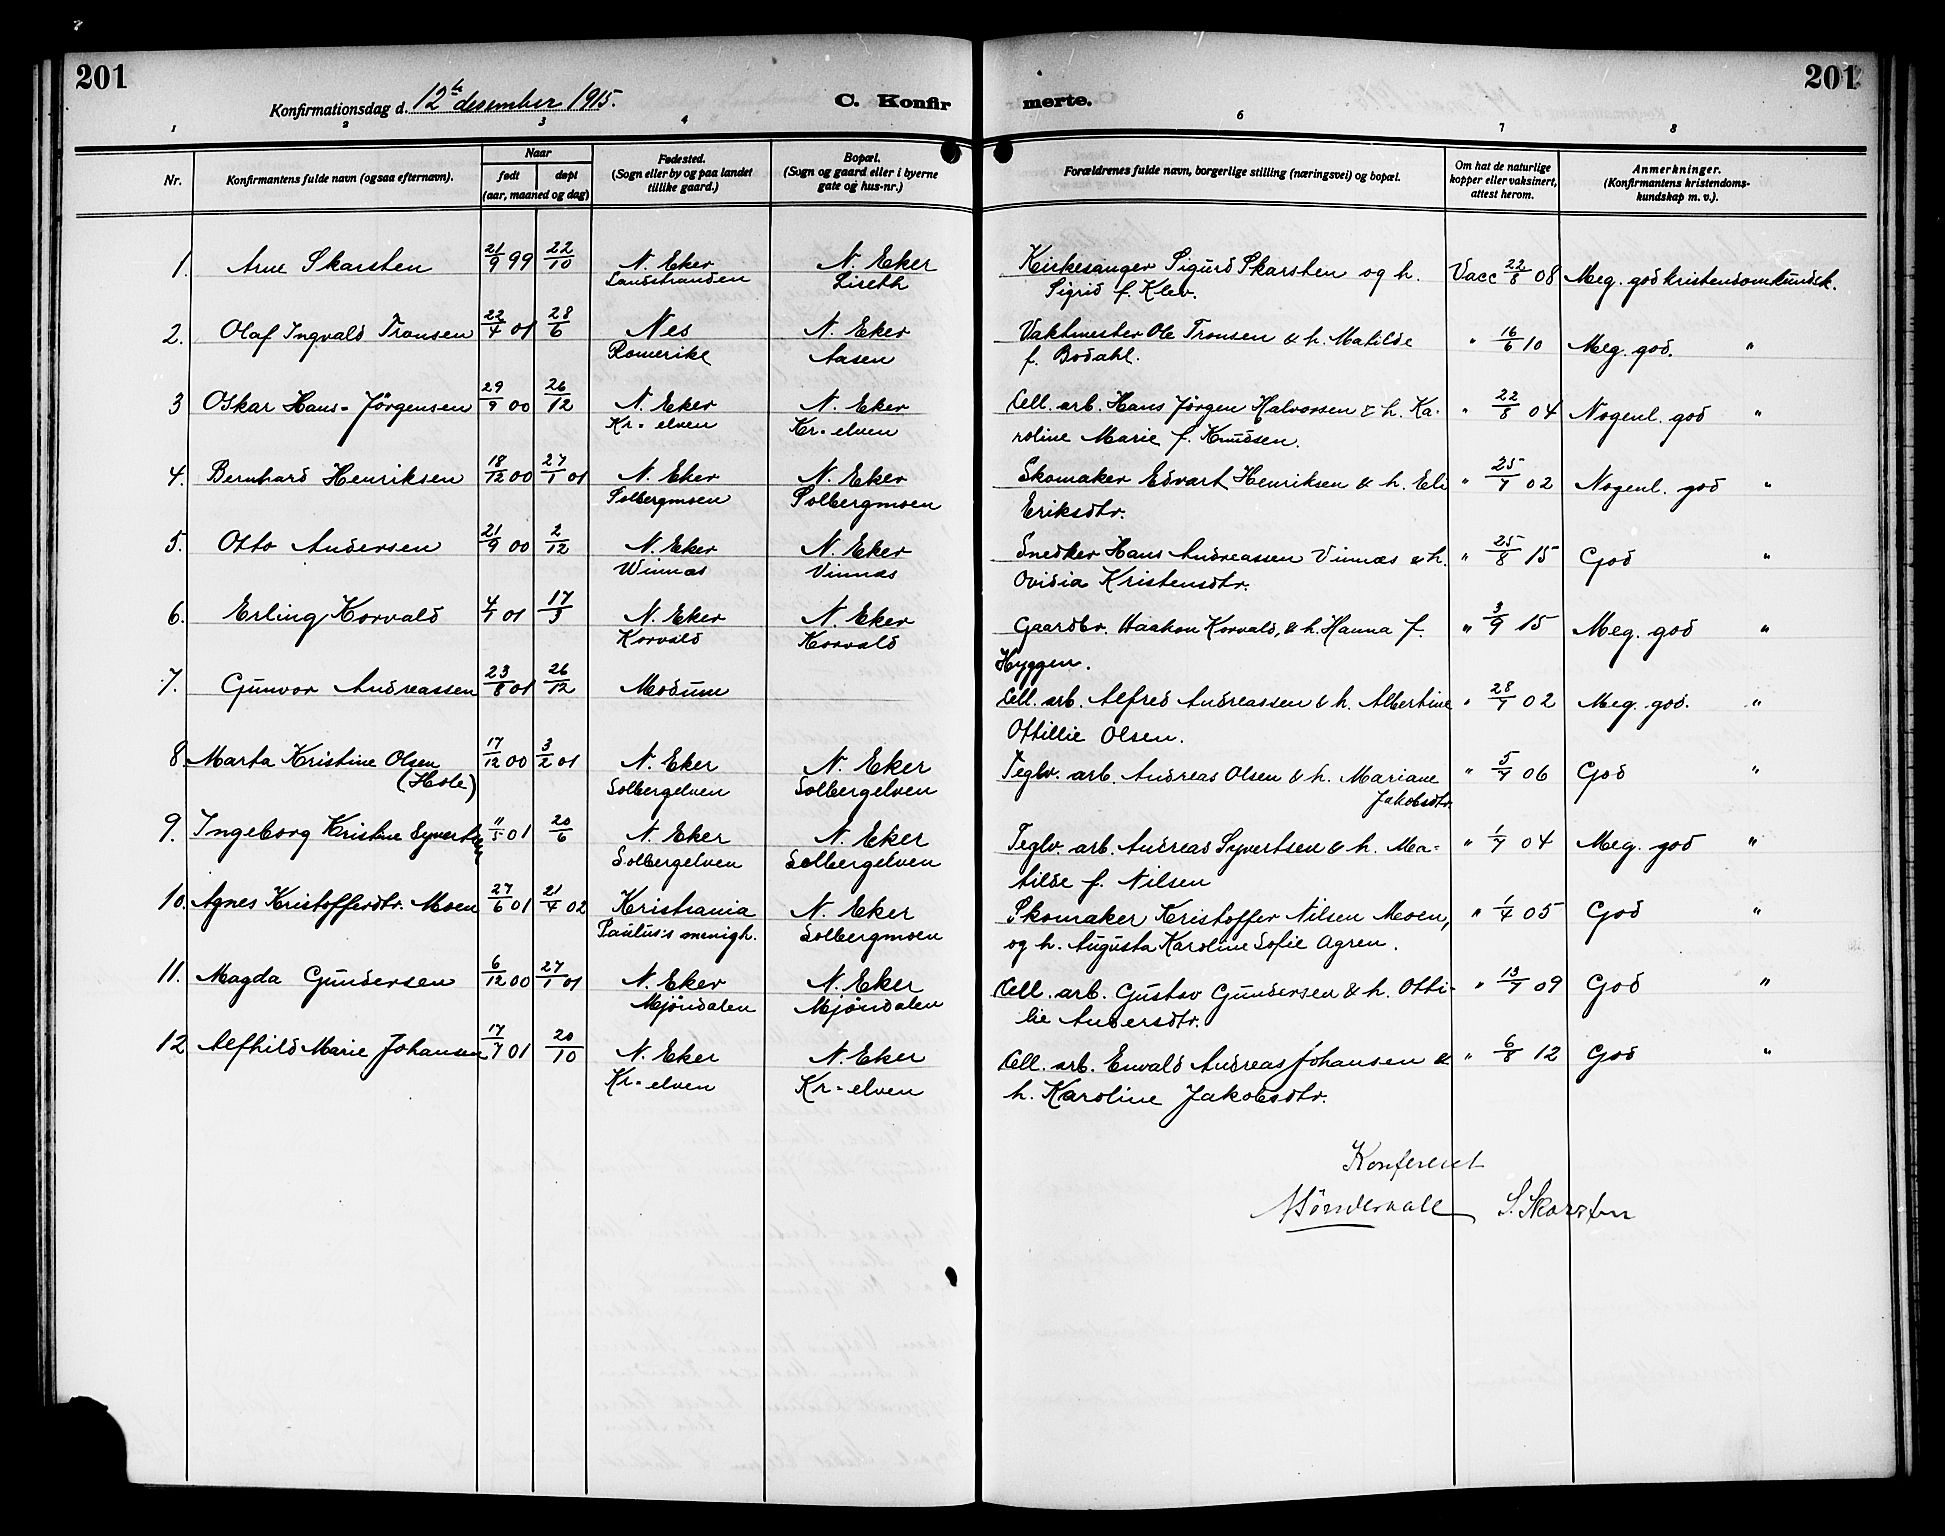 201
201
Konfirmationsdag d. 12te desember 1915.
C. Konfir
merte.
1 2 3 4 6 7 8
Nr.
Konfirmantens fulde navn (ogsaa efternavn).
Naar
født
døpt
(aar, maaned og dag)
Fødested.
(Sogn eller by og paa landet
tillike gaard.)
Bopæl.
(Sogn og gaard eller i byerne
gate og hus-nr.)
Forældrenes fulde navn, borgerlige stilling (næringsvei) og bopæl.
Om hat de naturlige
kopper eller vaksinert,
attest herom.
Anmerkninger.
(Konfirmantens kristendoms-
kundskap m. v.).
1. Arne Skarsten 21/9 99 22/10 N. Eker N. Eker Kirkesanger Sigurd Skarsten og h. Vacc 22/8 08 Meg. god kristendomskundsk.
Landstranden Liseth Sigrid f. Klev.
2. Olaf Ingvald Tronsen 22/4 01 28/6 Nes N. Eker Vaktmester Ole Tronsen & h. Matilde " 16/6 10 Meg. god. "
Romerike Aasen f. Bodahl.
3 Oskar Hans-Jörgensen 29/9 00 26/12 N. Eker N. Eker Cell. arb. Hans Jörgen Halvorsen & h. Ka- " 22/8 04 Nogenl. god "
Kr-elven Kr-elven roline Marie f. Knudsen.
4. Bernhard Henriksen 18/12 00 27/1 01 N. Eker N. Eker Skomaker Edvart Henriksen & h. Eli " 25/7 02 Nogenl. god "
Solbergmoen Solbergmoen Eriksdtr.
5. Otto Andersen 21/9 00 2/12 N. Eker N. Eker Snedker Hans Andreassen Vinnæs & h. " 25/8 15 God "
Winnæs Vinnæs Ovidia Kristensdtr.
6. Erling Korvald 4/1 01 17/3 N. Eker N. Eker Gaardbr. Haakon Korvald, & h. Hanna f. " 3/9 15 Meg. god "
Korvald Korvald Hyggen.
7. Gunvor Andreassen 23/8 01 26/12 Modum Cell. arb. Alfred Andreassen & h. Albertine " 28/7 02 Meg. god. "
Ottillie Olsen.
8 Marta Kristine Olsen 17/12 00 3/2 01 N. Eker N. Eker Teglv. arb. Andreas Olsen & h. Mariane " 5/7 06 God "
(Hole) Solbergelven Solbergelven Jakobsdtr.
9. Ingeborg Kristine Syvertsen 11/5 01 20/6 N. Eker N. Eker Teglv. arb. Andreas Syvertsen & h. Ma- " 1/7 04 Meg. god "
Solbergelven Solbergelven tilde f. Nilsen
10. Agnes Kristoffersdtr. Moen 27/6 01 21/4 02 Kristiania N. Eker Skomaker Kristoffer Nilsen Moen, " 1/4 05 God "
Paulus's menigh. Solbergmoen og h. Augusta Karoline Sofie Agren.
11. Magda Gundersen 6/12 00 27/1 01 N. Eker N. Eker Cell. arb. Gustav Gundersen & h. Otti- " 13/7 09 God "
Mjöndalen Mjöndalen lie Andersdtr.
12 Alfhild Marie Johansen 17/7 01 20/10 N. Eker N. Eker Cell. arb. Envald Andreas Johansen & " 6/8 12 God "
Kr-elven Kr-elven h. Karoline Jakobsdtr.
Konferert
S. Skarsten